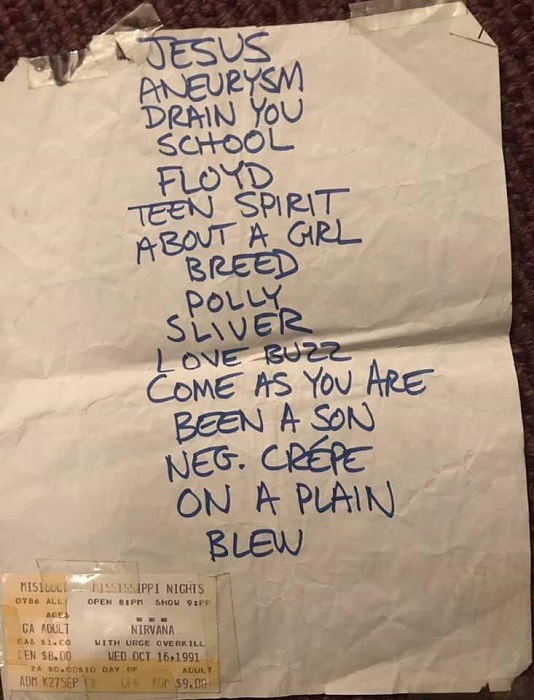 JESUS
ANEURYSM
DRAIN YOU
SCHOOL
FLOYD
TEEN SPIRIT
ABOUT A GIRL
BREED
POLLY
SLIVER
LOVE BUZZ
COME AS YOU ARE
BEEN A SON
NEG. CRÉPE
ON A PLAIN
BLEW
MISSISSIPPI NIGHTS
0786 ALL OPEN 8:PM SHOW 9:PM
AGES
GA ADULT NIRVANA
WITH URGE OVERKILL
GEN $8.00 WED OCT 16,1991
DAY OF ADULT
ADM K27SEP $9.00